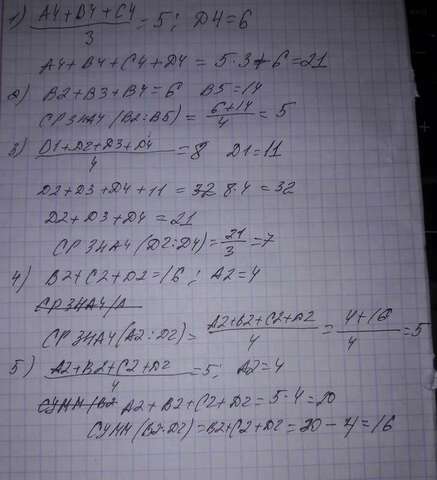 1) A4+B4+C4/3 = 5; D4=6
A4+B4+C4+D4 = 5·3+6=21
2) B2+B3+B4=6 B5=14
СРЗНАЧ(B2:B5) = 6+14/4 = 5
3) D1+D2+D3+D4/4 = 8 D1=11
D2+D3+D4+11 = 32 8·4=32
D2+D3+D4=21
СРЗНАЧ(D2:D4)=21/3=7
4) B2+C2+D2=16; A2=4
СРЗНАЧ/А
СРЗНАЧ(A2:D2)= A2+B2+C2+D2/4 = 4+16/4 = 5
5) A2+B2+C2+D2/4 = 5; A2=4
СУММ(B2 A2+B2+C2+D2=5·4=20
СУММ(B2:D2)=B2+C2+D2=20-4=16